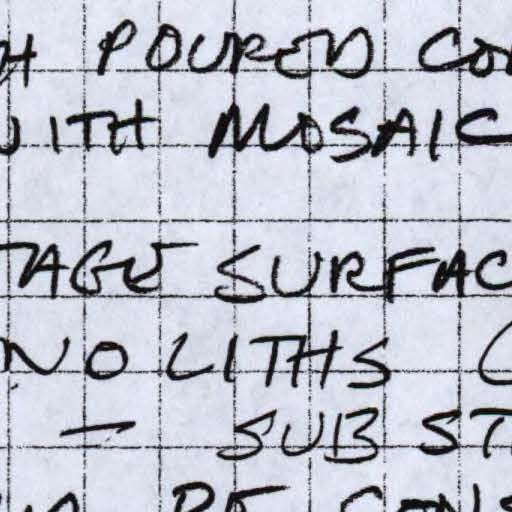 H POURED CO
WITH MOSAIC
TAGE SURFAC
NOLITHS (
— SUB ST